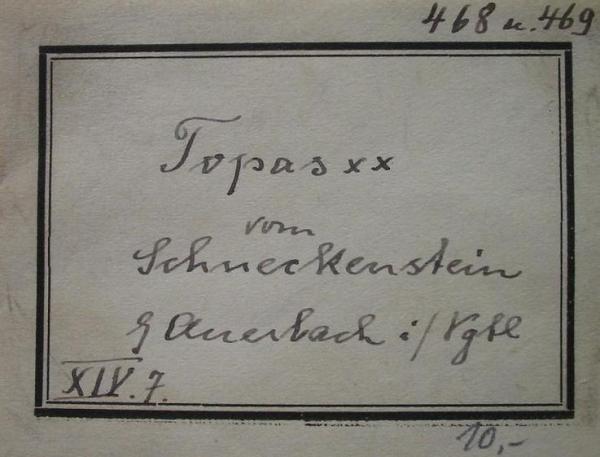 468 u. 469
Topas xx
vom
Schneckenstein
Auerbach i/Vgtl
XIV. 7.
10,-